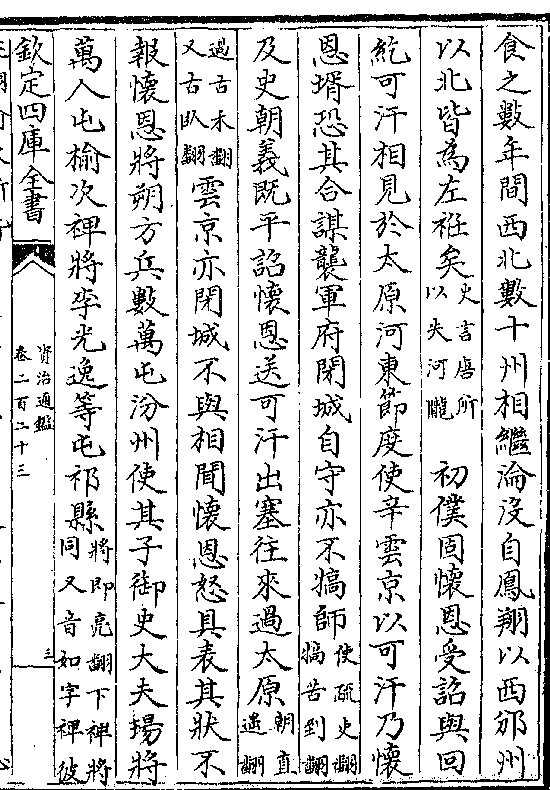 食之數年間西北數十州相繼淪没自鳳翔以西邠州
以北皆為左袵矣史言唐所以失河隴　初僕固懷恩受詔與回
紇可汗相見於太原河東節度使辛雲京以可汗乃懷
恩壻恐其合謀襲軍府閉城自守亦不犒師使疏吏翻犒苦到翻
及史朝義既平詔懷恩送可汗出塞往來過太原朝直遥翻
過古禾翻又古卧翻雲京亦閉城不與相聞懷恩怒具表其狀不
報懷恩將朔方兵數萬屯汾州使其子御史大夫瑒將
萬人屯榆次禆將李光逸等屯祁縣將即亮翻下禆將同又音如字禆彼
欽定四庫全書
資治通鑑
卷二百二十三
三